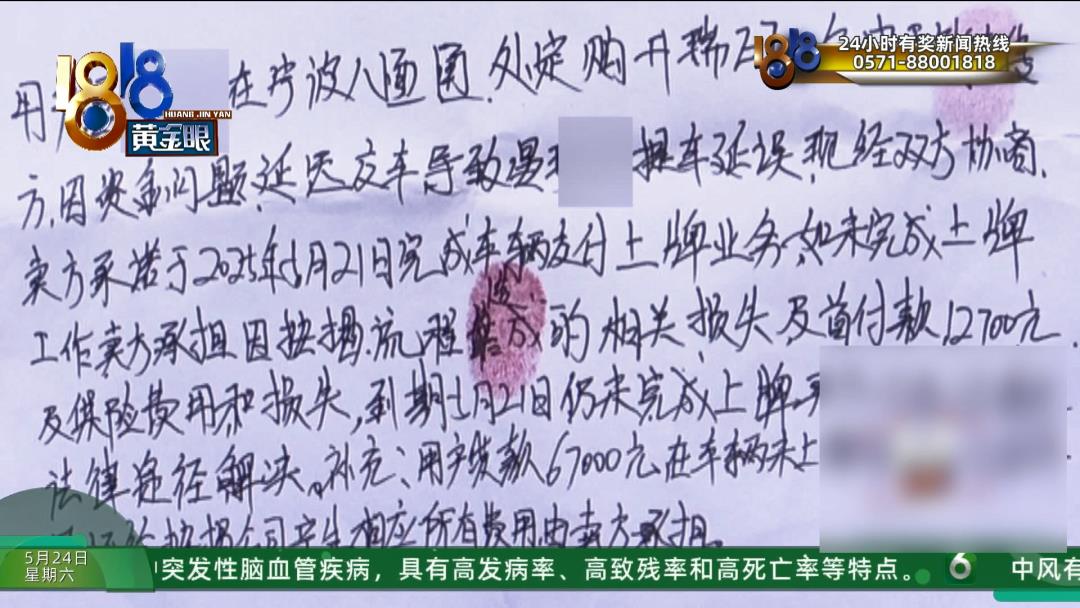 1818
HUANG JIN YAN
黄金眼
1818
24小时有奖新闻热线
0571-88001818
用 在宁波八面图,处定购开瑞
方,因资金问题,延迟交车导致 提车延误,现经双方协商,
卖方承诺于2025年5月21日完成车辆支付上牌业务,如未完成上牌
工作卖方承担因按揭流程造成的相关损失及首付款12700元
及保险费用和损失,到期5月21日仍未完成上牌,
法律途径解决。补充:用户贷款67000元在车辆未上
按揭公司产生相应所有费用由卖方承担。
5月24日
星期六
突发性脑血管疾病,具有高发病率、高致残率和高死亡率等特点。
6
中风有